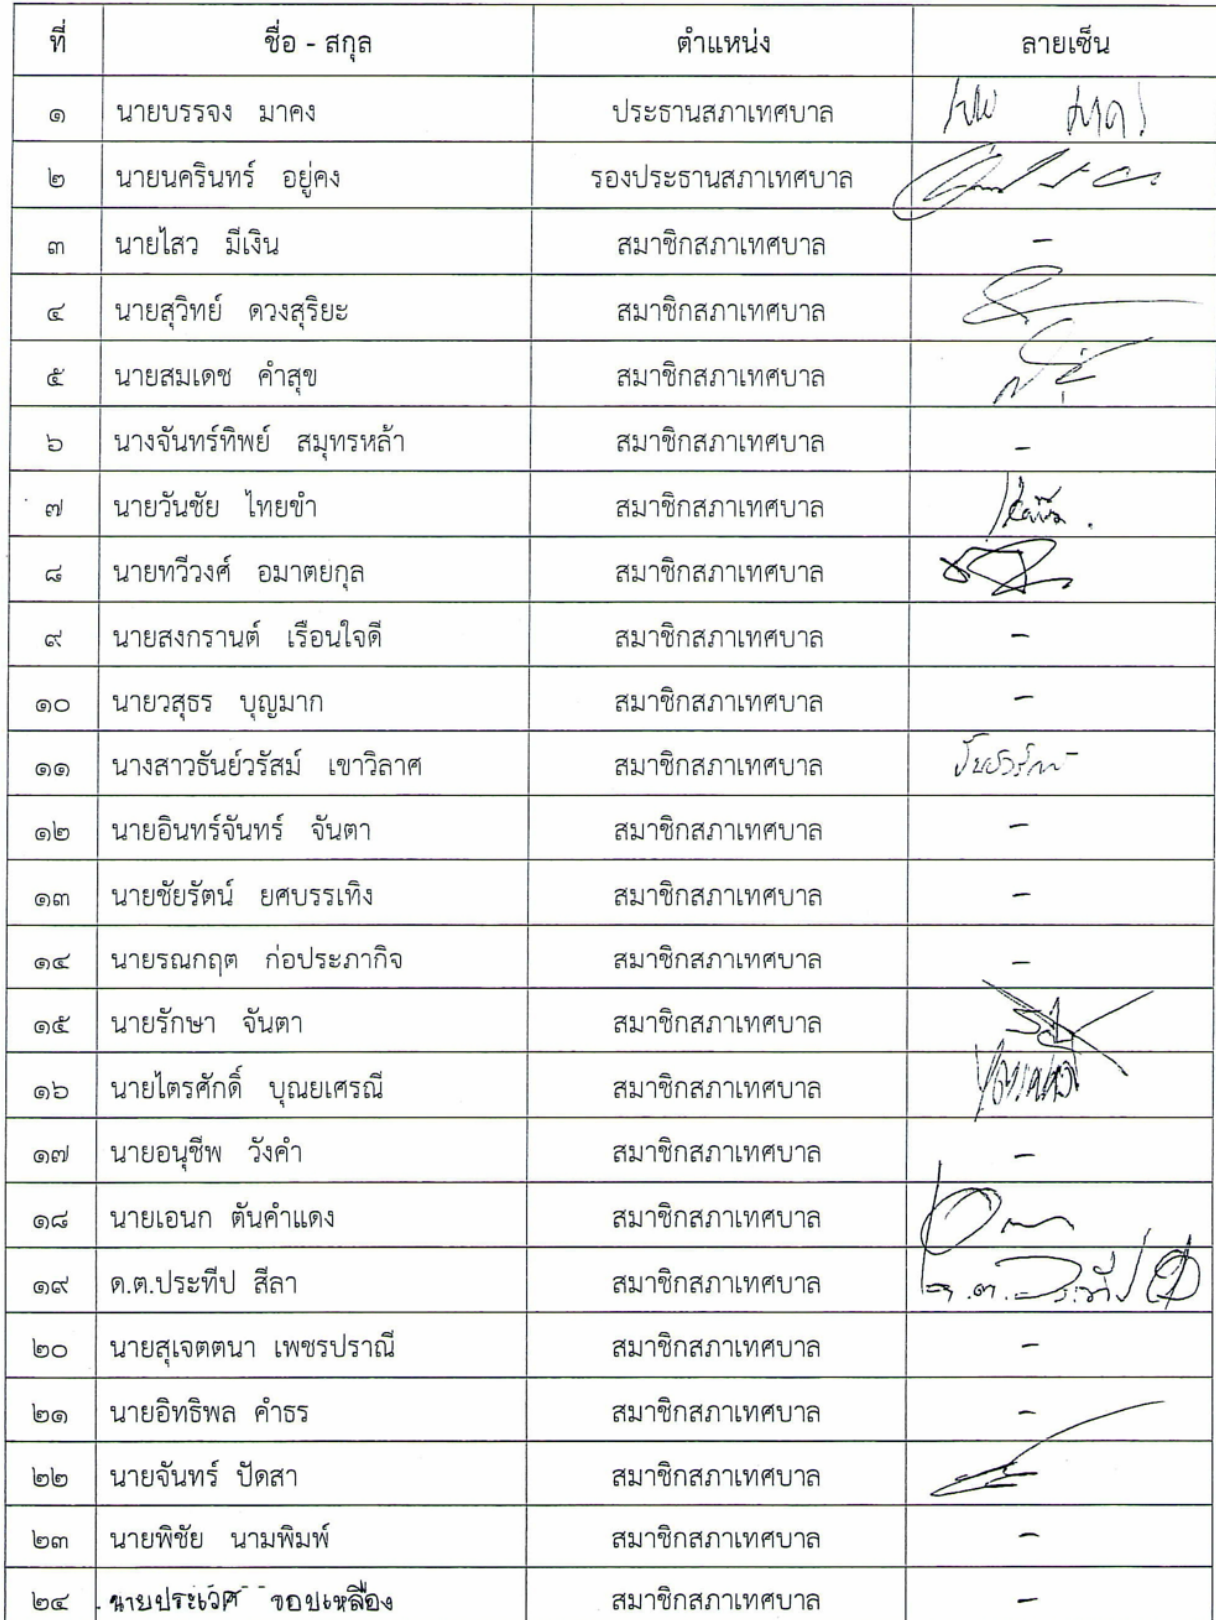 ที่ ชื่อ - สกุล ตำแหน่ง ลายเซ็น
๑ นายบรรจง มาคง ประธานสภาเทศบาล
๒ นายนครินทร์ อยู่คง รองประธานสภาเทศบาล
๓ นายไสว มีเงิน สมาชิกสภาเทศบาล -
๔ นายสุวิทย์ ดวงสุริยะ สมาชิกสภาเทศบาล
๕ นายสมเดช คำสุข สมาชิกสภาเทศบาล
๖ นางจันทร์ทิพย์ สมุทรหล้า สมาชิกสภาเทศบาล -
๗ นายวันชัย ไทยขำ สมาชิกสภาเทศบาล
๘ นายทวีวงศ์ อมาตยกุล สมาชิกสภาเทศบาล
๙ นายสงกรานต์ เรือนใจดี สมาชิกสภาเทศบาล -
๑๐ นายวสุธร บุญมาก สมาชิกสภาเทศบาล -
๑๑ นางสาวธันย์วรัสม์ เขาวิลาศ สมาชิกสภาเทศบาล
๑๒ นายอินทร์จันทร์ จันตา สมาชิกสภาเทศบาล -
๑๓ นายชัยรัตน์ ยศบรรเทิง สมาชิกสภาเทศบาล -
๑๔ นายรณกฤต ก่อประภากิจ สมาชิกสภาเทศบาล -
๑๕ นายรักษา จันตา สมาชิกสภาเทศบาล
๑๖ นายไตรศักดิ์ บุณยเศรณี สมาชิกสภาเทศบาล
๑๗ นายอนุชีพ วังคำ สมาชิกสภาเทศบาล -
๑๘ นายเอนก ตันคำแดง สมาชิกสภาเทศบาล
๑๙ ด.ต.ประทีป สีลา สมาชิกสภาเทศบาล
๒๐ นายสุเจตตนา เพชรปราณี สมาชิกสภาเทศบาล -
๒๑ นายอิทธิพล คำธร สมาชิกสภาเทศบาล -
๒๒ นายจันทร์ ปัดสา สมาชิกสภาเทศบาล
๒๓ นายพิชัย นามพิมพ์ สมาชิกสภาเทศบาล -
๒๔ นายประเวศ ขอบเหลือง สมาชิกสภาเทศบาล -